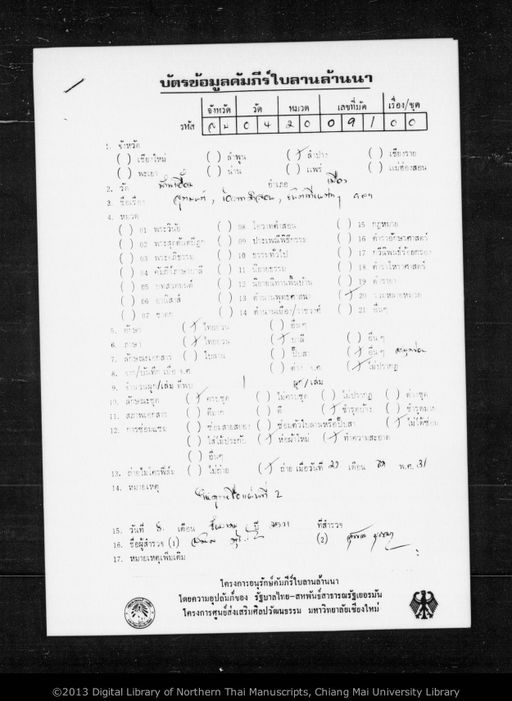 บัตรข้อมูลคัมภีร์ใบลานล้านนา
จังหวัด วัด หมวด เลขที่มัด เรื่อง/ชุด
รหัส ล ป 0 4 2 0 0 9 1 0 0
1. จังหวัด
( ) เชียงใหม่ ( ) ลำพูน (/) ลำปาง ( ) เชียงราย
( ) พะเยา ( ) น่าน ( ) แพร่ ( ) แม่ฮ่องสอน
2. วัด อำเภอ เมือง
3. ชื่อเรื่อง
4. หมวด
( ) 01 พระวินัย ( ) 08 โอวาทคำสอน ( ) 15 กฎหมาย
( ) 02 พระสุตตันตปิฎก ( ) 09 ประเพณีพิธีกรรม ( ) 16 ตำราอักษรศาสตร์
( ) 03 พระอภิธรรม ( ) 10 ธรรมทั่วไป ( ) 17 กวีนิพนธ์ร้อยกรอง
( ) 04 คัมภีร์ภาษาบาลี ( ) 11 นิยายธรรม ( ) 18 ตำราโหราศาสตร์
( ) 05 บทสวดมนต์ ( ) 12 นิยายนิทานพื้นบ้าน ( ) 19 ตำรายา
( ) 06 อานิสงส์ ( ) 13 ตำนานพุทธศาสนา (/) 20 รวมหลายหมวด
( ) 07 ชาดก ( ) 14 ตำนานเมือง/ราชวงศ์ ( ) 21 อื่นๆ
5. อักษร (/) ไทยยวน ( ) อื่นๆ
6. ภาษา (/) ไทยยวน (/) บาลี ( ) อื่นๆ
7. ลักษณะเอกสาร ( ) ใบลาน ( ) ปั๊บสา (/) อื่นๆ
8. จาร/บันทึก เมื่อ จ.ศ. ( ) ศักราช จ.ศ. (/) ไม่ปรากฏ
9. จำนวนผูก/เล่ม ที่พบ 1 ผูก/เล่ม
10. ลักษณะชุด (/) ครบชุด ( ) ไม่ครบชุด ( ) ไม่ปรากฏ ( ) ต่างชุด
11. สภาพเอกสาร ( ) ดีมาก ( ) ดี (/) ชำรุดบ้าง ( ) ชำรุดมาก
12. การซ่อมแซม ( ) ซ่อมสายสยอง ( ) ซ่อมตัวใบลานหรือปั๊บสา (/) ไม่ได้ซ่อม
( ) ใส่ไม้ประกับ (/) ห่อผ้าใหม่ (/) ทำความสะอาด
( ) อื่นๆ
13. ถ่ายไมโครฟิล์ม ( ) ไม่ถ่าย (/) ถ่าย เมื่อวันที่ เดือน พ.ศ. 31
14. หมายเหตุ
2
15. วันที่ 8 เดือน ปี ที่สำรวจ
16. ชื่อผู้สำรวจ (1) (2)
17. หมายเหตุเพิ่มเติม
โครงการอนุรักษ์คัมภีร์ใบลานล้านนา
โดยความอุปถัมภ์ของ รัฐบาลไทย-สหพันธ์สาธารณรัฐเยอรมัน
โครงการศูนย์ส่งเสริมศิลปวัฒนธรรม มหาวิทยาลัยเชียงใหม่
©2013 Digital Library of Northern Thai Manuscripts, Chiang Mai University Library